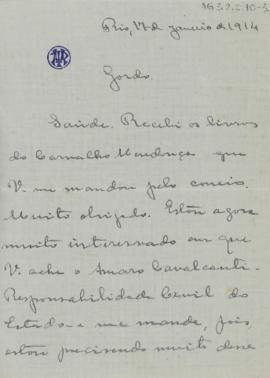 Rio, 17 de janeiro de 1914
Gordo.
Saúde. Recebi os livros
do Carvalho Mendonça que
V. me mandou pelo correio.
Muito obrigado. Estou agora
muito interessado em que
V. ache o Amaro Cavalcanti -
Responsabilidade Civil do
Estado - e me mande, pois
estou precisando muito desse